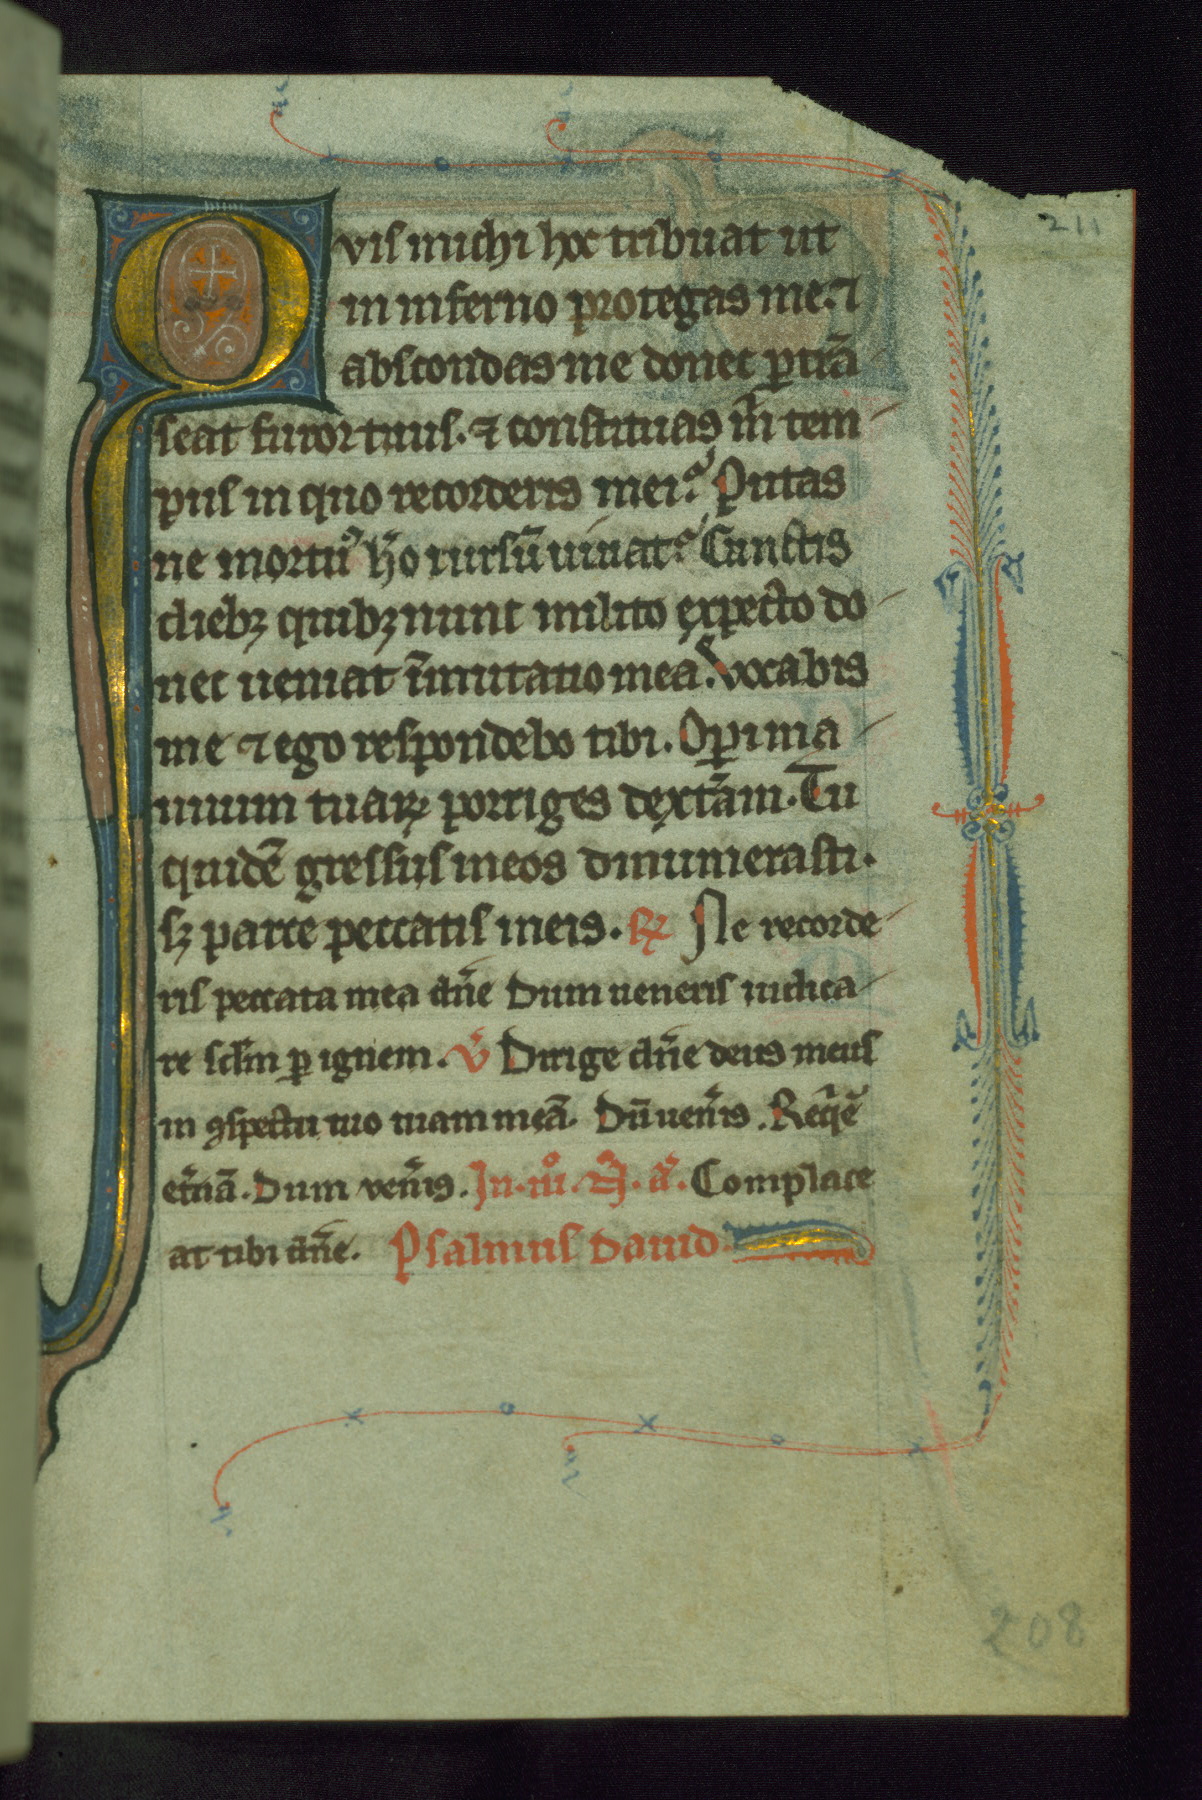 211
Quis michi hoc tribuat ut
in inferno protegas me. ⁊
abscondas me donec ꝑtrã
seat furor tuus. ⁊ constituas m̃ tem
pus in quo recorderis mei? Putas
ne mortuꝰ hõ rursũ uiuat? Cunctis
diebꝫ quibꝫ nunc milito expecto do
nec ueniat ĩmutatio mea. Vocabis
me ⁊ ego respondebo tibi. Oꝑi ma
nuum tuaꝝ porriges dext̃am. Tu
quidẽ gressus meos dinumerasti.
sꝫ parce peccatis meis. Ne recorde
ris peccata mea dñe Dum ueneris iudica
re scl̃m ꝑ ignem. V̾ Dirige dñe deus meus
in ꝯspectu tuo uiam meã. Dũ ueñis. Reqꝫẽ
et̾nã. Dum veñis. In. iijͦ. N̾. a̾. Complace
at tibi dñe. Psalmus dauid
208